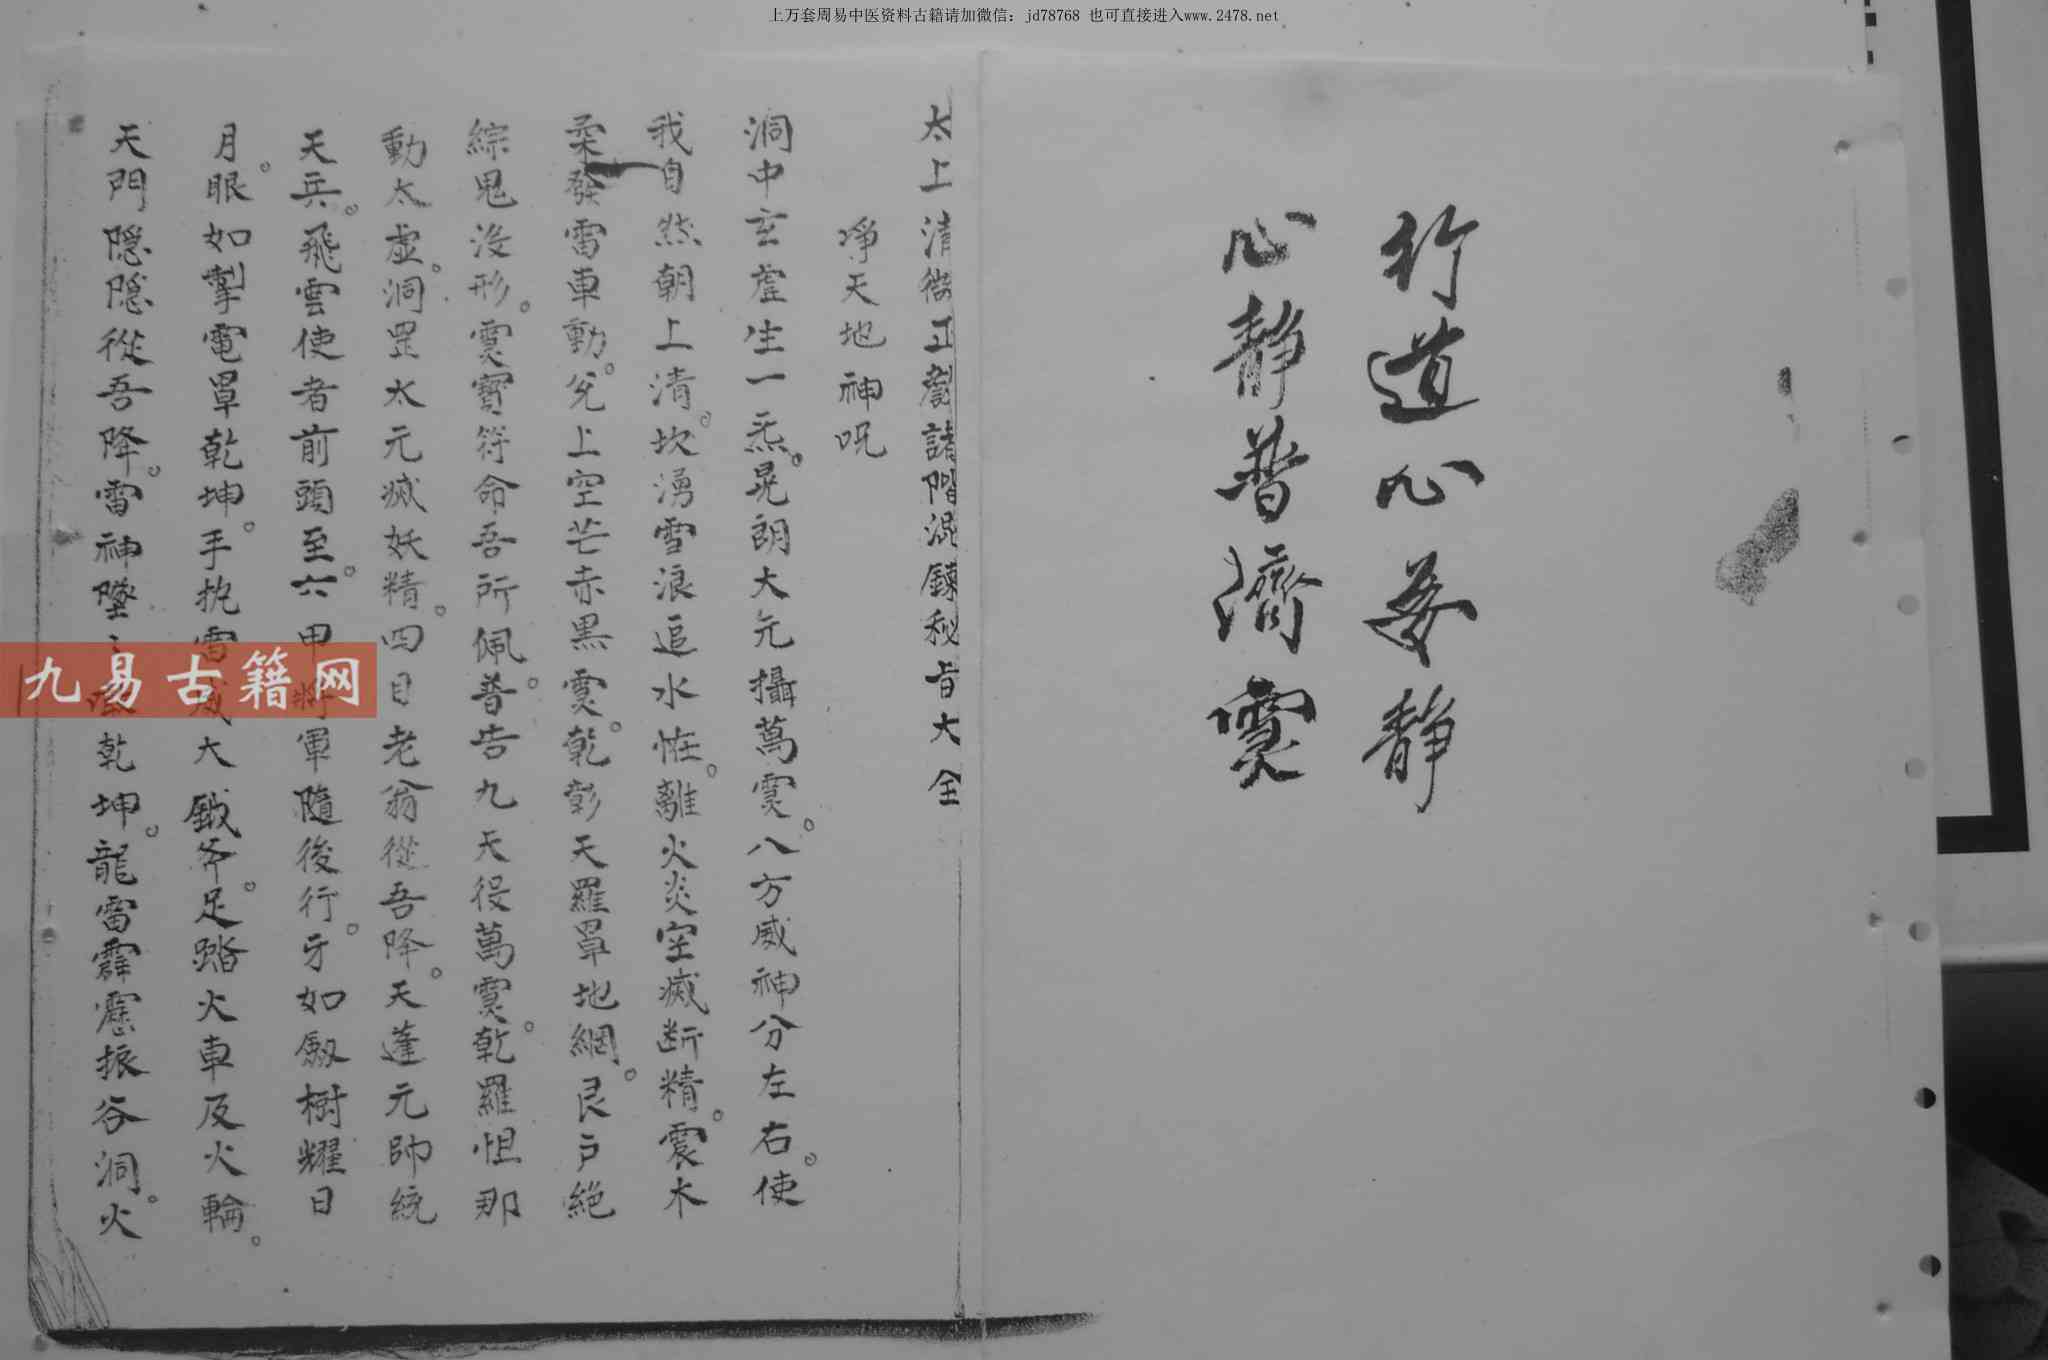 上万套周易中医资料古籍请加微信：jd78768 也可直接进入www.2478.net
行道心要静
心静普濟霊
太上清微正劉諸階混鍊秘旨大全
凈天地神呪
洞中玄虛生一炁。晃朗大元攝萬霊。八方威神分左右。使
我自然朝上清。坎湧雪浪追水怪。離火炎空滅断精。震木
柔發雷車動。兊上空芒赤黑霊。乾彰天羅罩地網。艮户絕
綜鬼沒形。霊寶符命吾所佩。普告九天役萬霊。乾羅怛那
動太虛。洞罡太元滅妖精。四目老翁從吾降。天蓬元帥統
天兵。飛雲使者前頭至。六甲將軍隨後行。牙如劔樹耀日
月。眼如掣電罩乾坤。手执雷威大鉞斧。足踏火車及火輪。
天門隱隱從吾降。雷神墜乾坤。龍雷霹靂振谷洞。火
九易古籍网